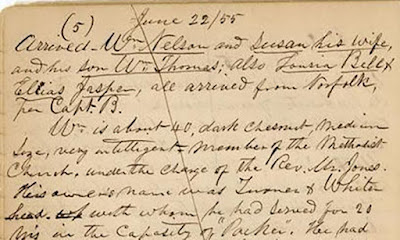 (5) June 22/55
Arrived - Wm Nelson and Susan his wife,
and his son Wm Thomas; also Louisa Bell &
Ellias Jasper, all arrived from Norfolk,
per Capt. B.
Wm is about 40, dark chesnut, medium
size, very intelligent member of the Methodist
Church, under the charge of the Rev. Mr. Jones.
His owner's name was Turner & White
head with whom he had served for 20
yrs in the Capacity of "Packer. He had